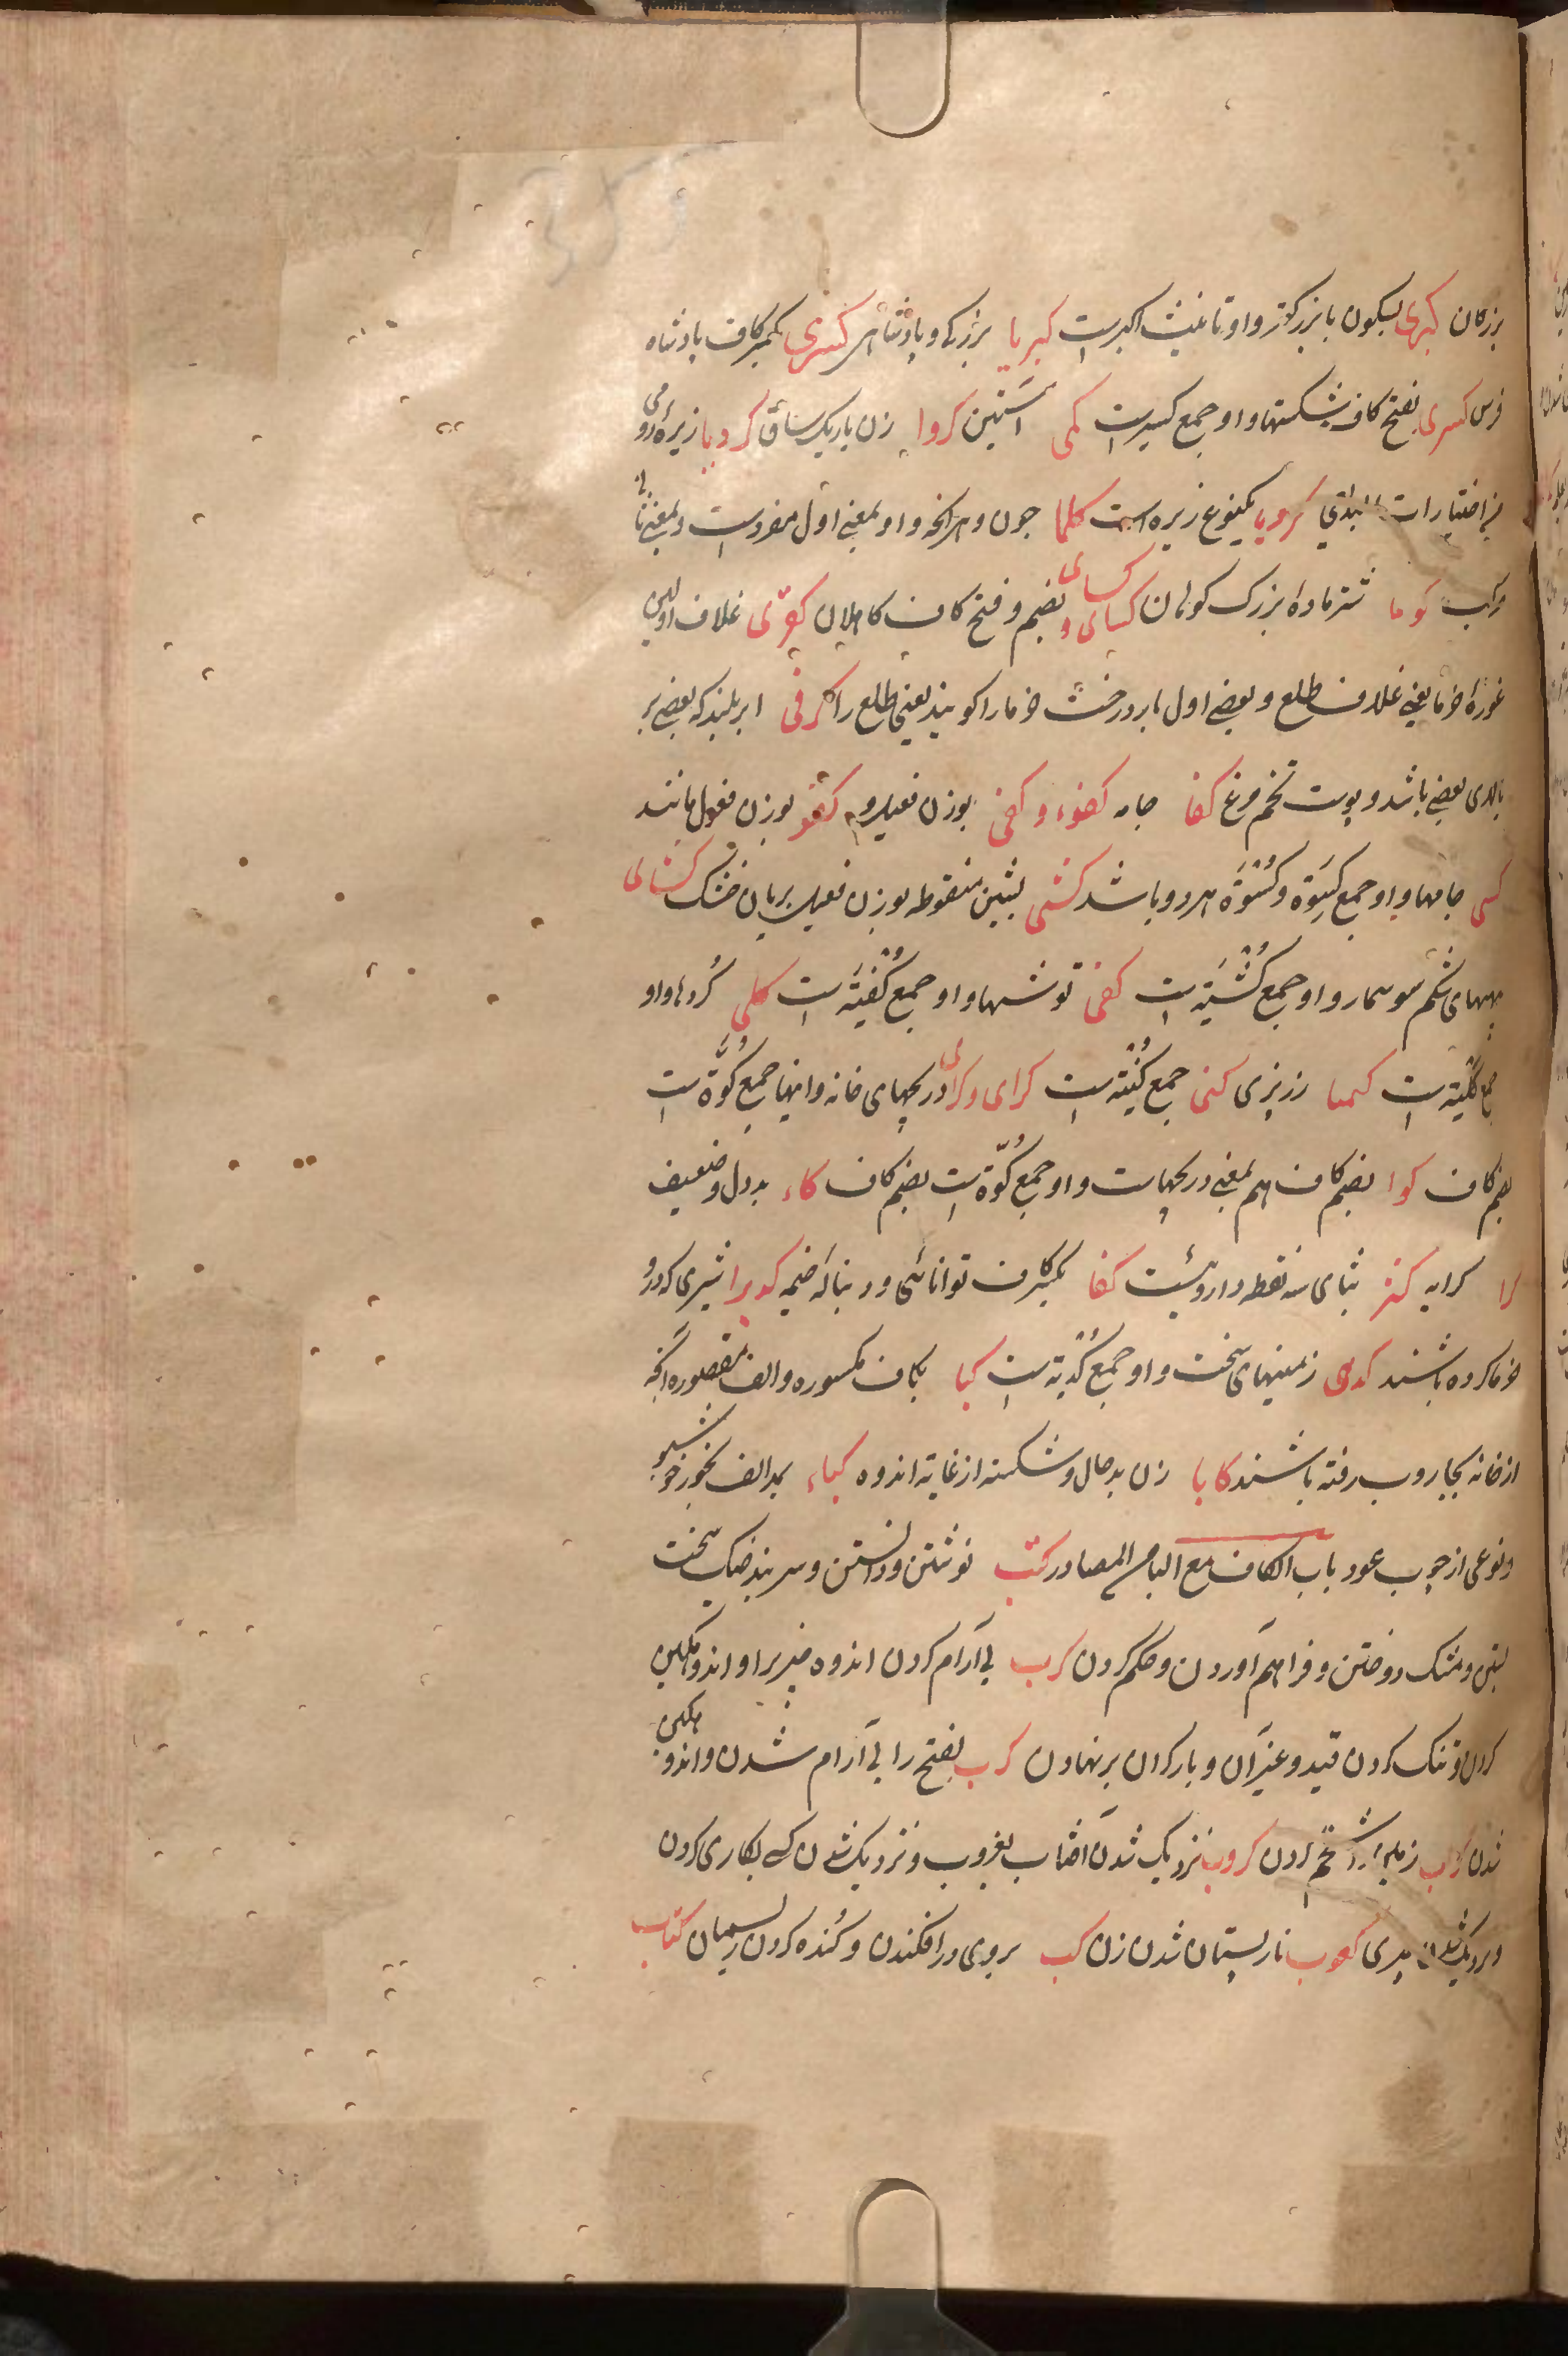 بزرکان کبری بسکون با بزرکتر و او تانیث اکبرست کبریا بزرکی و پادشاهی کسری بکسر کاف پادشاه
فرس کسری بفتح کاف شکستها و او جمع کسیرست کمی آستین کروا زن باریک ساق کرویا زیره رومی
فی اختیارات کرویا یکنوع زیره است کلما چون و هرانچه و او بمعنی اول مفردست و بمعنی ثانی
مرکب کوما شتر ماده بزرک کوهان کسالی و کسالی بضم و فتح کاف کاهلان کفری غلاف اولین
غوره خرما یعنی غلاف طلع و بعضی اول بار درخت خرما را کویند یعنی طلع را کرفی ابر بلند که بعضی بر
بالای بعضی باشد و پوست تخم مرغ کفا جامه کفوء و کفی بوزن فعیل و کفو بوزن فعول مانند
کسی جامها و او جمع کسوة و کسوة هر دو باشد کشی بشین منقوطه بوزن فعیل بریان خشک کشالی
پیههای شکم سوسمار و او جمع کشیة است کفی توشها و او جمع کفیة است کلی کردها و او
جمع کلیة است کیمیا زرپزی کنی جمع کنیة است کرای و کرالی دریچهای خانه و اینها جمع کوة است
بضم کاف کوا بضم کاف هم بمعنی دریچهاست و او جمع کوة است بضم کاف کاء بددل و ضعیف
کرا کرایه کثر بثای سه نقطه داروئیست کفا بکسر کاف توانائی و دنباله خیمه کدیرا شیری که درو
خرما کرده باشند کدی زمینهای سخت و او جمع کدیة است کبا بکاف مکسوره و الف مقصوره آنچه
از خانه بجاروب رفته باشند کابا زن بدحال و شکسته از غایة اندوه کباء بمد الف بخور خوشبو
و نوعی از چوب عود باب الکاف مع الباء من المصادر کتب نوشتن و دانستن و سر بند خیک سخت
بستن و مشک دوختن و فراهم آوردن و حکم کردن کرب بی آرام کردن اندوه میریرا و اندوهکین
کردن و تنک کردن قید و غیر آن و بار کران بر نهادن کرب بفتح را بی آرام شدن و اندوهکین
شدن کراب تخم کردن کروب نزدیک شدن آفتاب بغروب و نزدیک شدن کسی بکاری کردن
و نزدیک شدن پیری کعوب نار پستان شدن زن کب بروی در افکندن و کنده کردن ریسمان کتاب